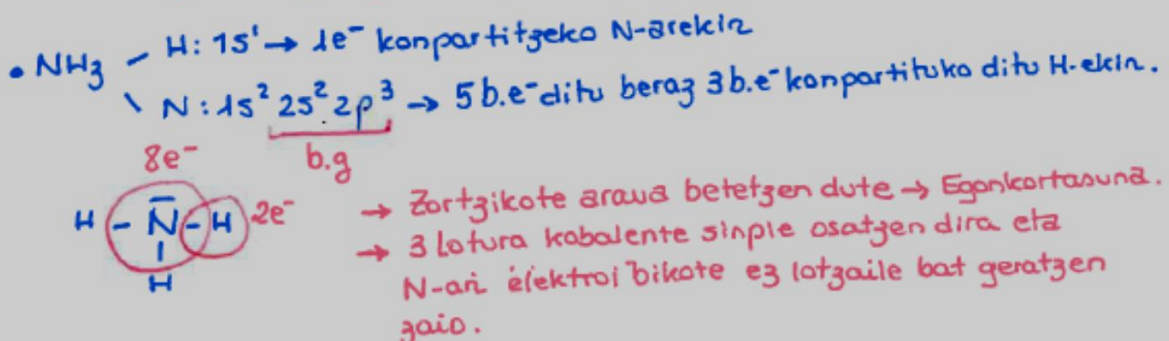 • NH₃ - H: 1s¹ → 1e⁻ konpartitzeko N-arekin
\ N: 1s² 2s² 2p³ → 5 b.e⁻ ditu beraz 3 b.e⁻ konpartituko ditu H-ekin.
b.g
8e⁻
H - N̄ - H 2e⁻
|
H
→ Zortzikote araua betetzen dute → Egonkortasuna.
→ 3 lotura kobalente sinple osatzen dira eta
N-ari elektroi bikote ez lotzaile bat geratzen
zaio.